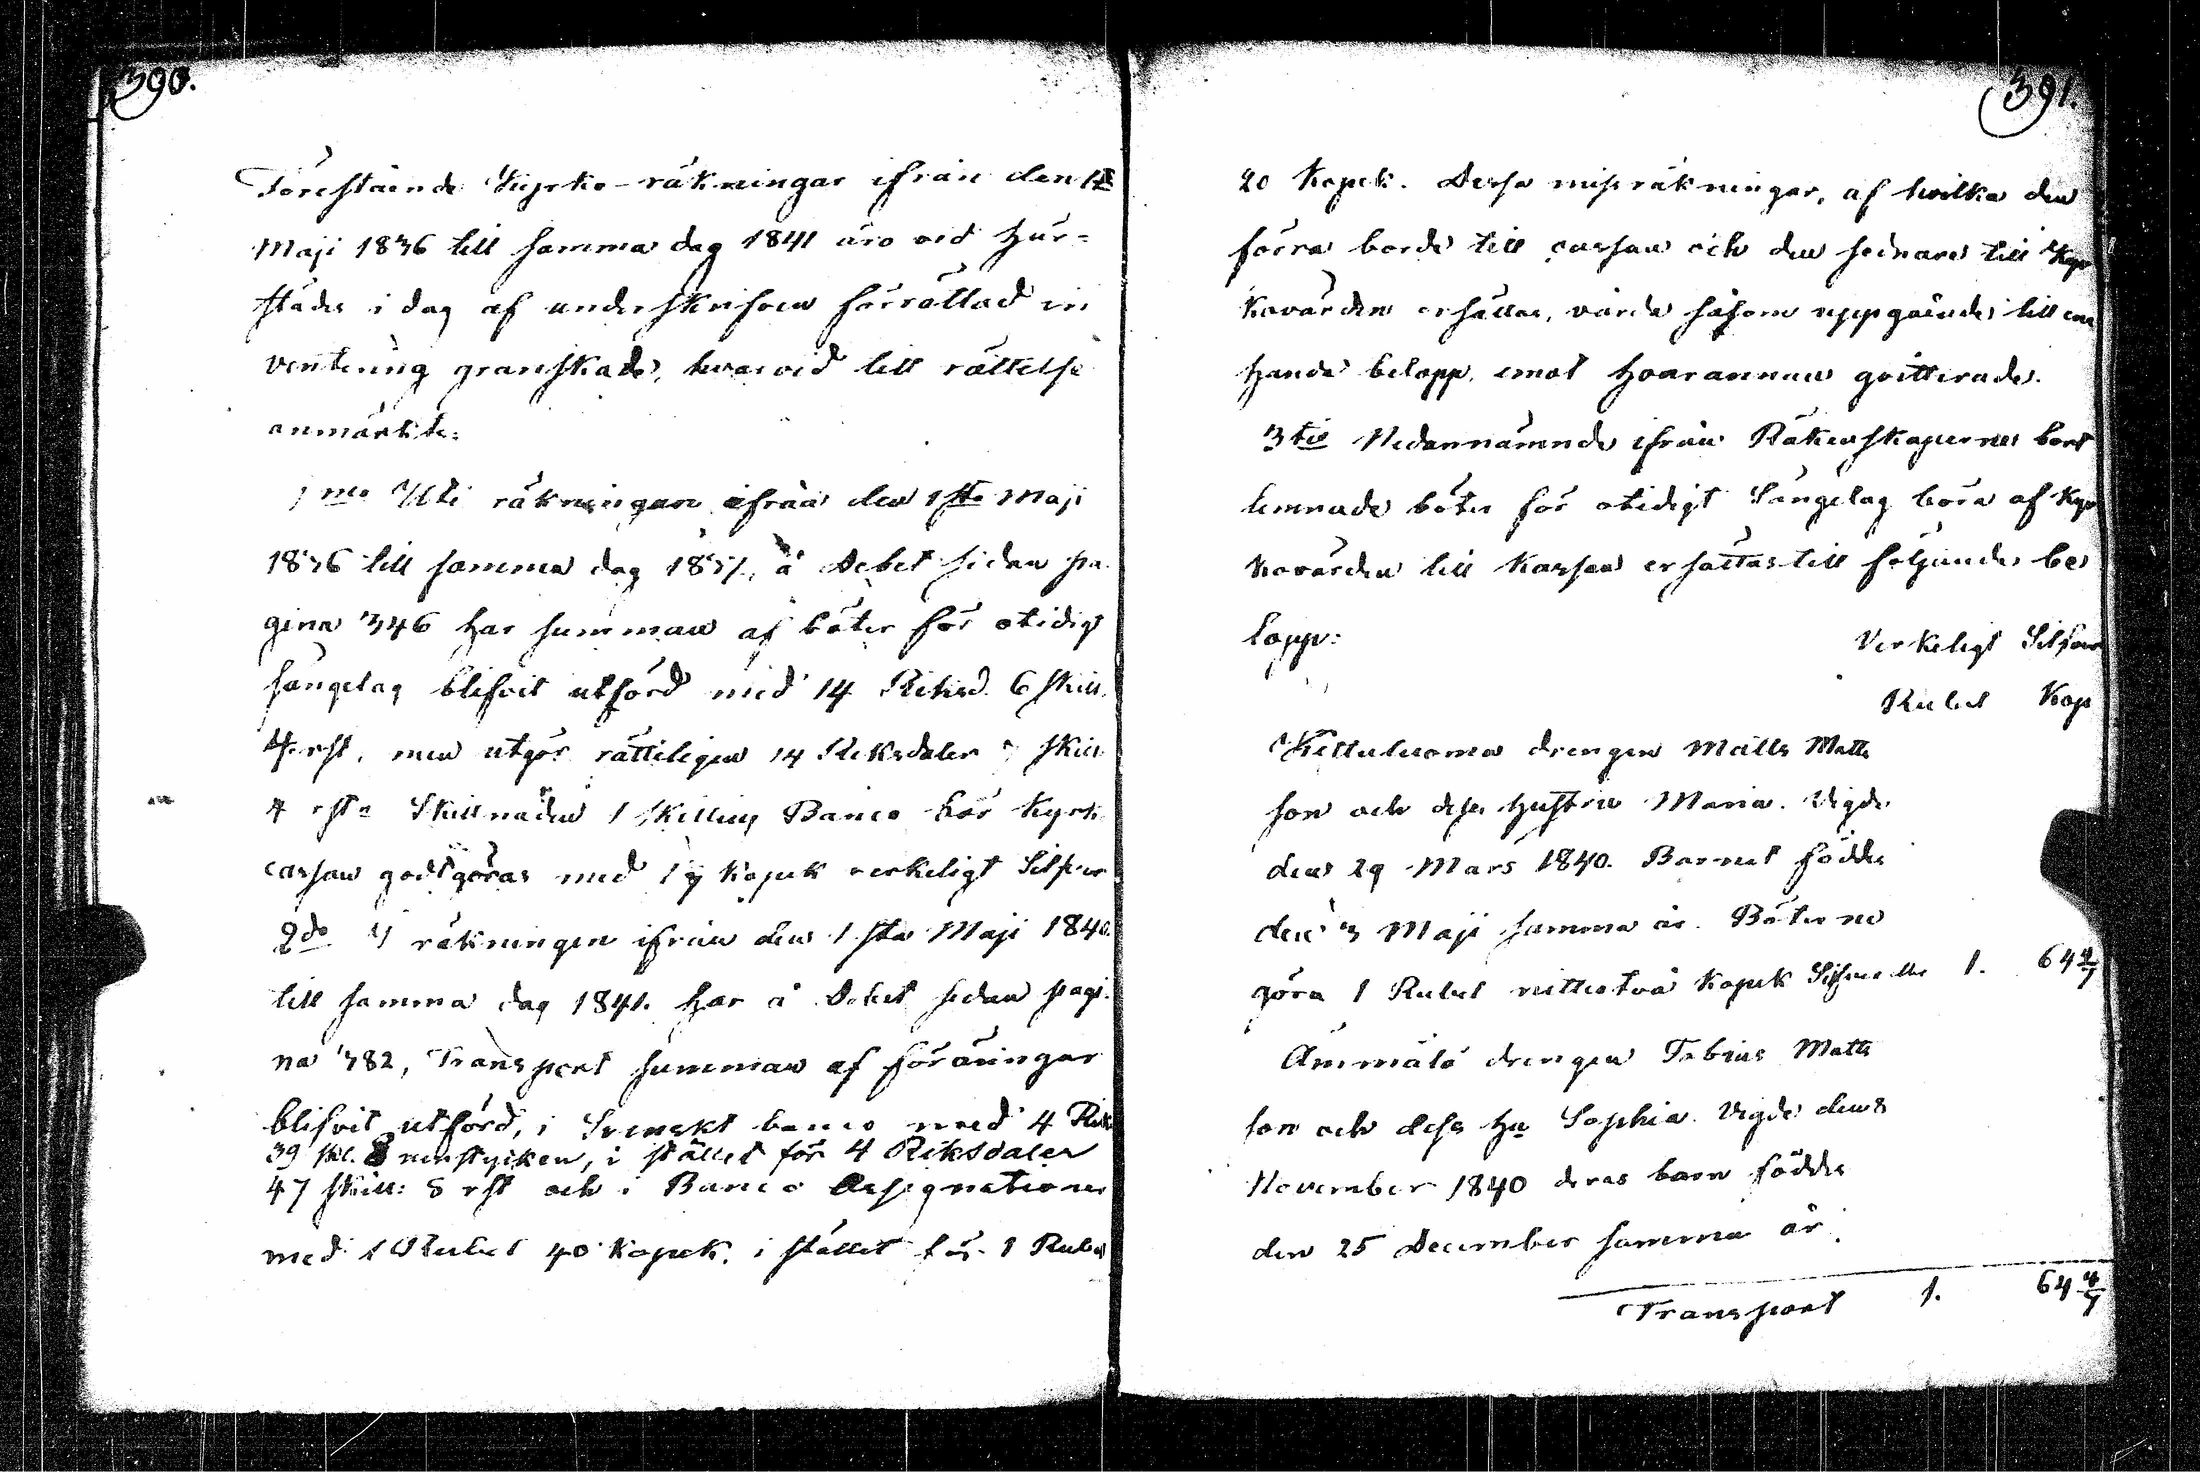 390.
Förestående Kyrko-räkningar ifrån den 1ste
Maji 1836 till samma dag 1841 äro vid här-
städes i dag af underskrifven förrättad in
ventering granskade, hvarvid till rättelse
anmärkte:
1mo Uti räkningen ifrån den 1sta Maji
1836 till samma dag 1837, å Debet sidan pa
gina 346 har summan af böter för otidigt
sängelag blifvit utförd med 14 Riksd. 6 skill.
4 rst, men utgör rätteligen 14 Riksdaler 7 skill
4 rst. Skillnaden 1 skilling Banco bör Kyrk
cassan godtgöras med kopek verkeligt Silfver
2do I räkningen ifrån den 1sta Maji 1840.
till samma dag 1841. har å Debet sidan pagi
na 382, Transport summan af föräringar
blifvit utförd, i Svenskt banco med 4 Rik
39 skl. 8 runstycken, i stället för 4 Riksdaler
47 skill: 8 rst och i Banco Assignationer
med 1 Rubel 40 kopek. i stället för 1 Rubel
391.
20 Kopek. Dessa missräkningar, af hvilka den
förra borde till cassan och den sednare till Kyr
kovärden ersättas, vårda såsom uppgående till ena
handa belopp, emot hvarannan qvitterade.
3tio Nedannämnde ifrån Räkenskaperne bort
lemnade böter för otidigt Sängelag böra af Kyr
kovärden till Kassan ersättas till följande be
lopp: Verkeligt Silfver
Rubel Kop
Kettuluoma drengen Matts Matts
son och dess hustru Maria. Vigde
den 29 Mars 1840. Barnet föddes
den 3 Maji samma år. Böterne
göra 1 Rubel nittiotvå kopek 1. 64 4/7
Ämmälä drengen Tobias Matts
son och dess hu Sophia. Vigde den 8
November 1840 deras barn föddes
den 25 December samma år.
Transport 1. 64 4/7